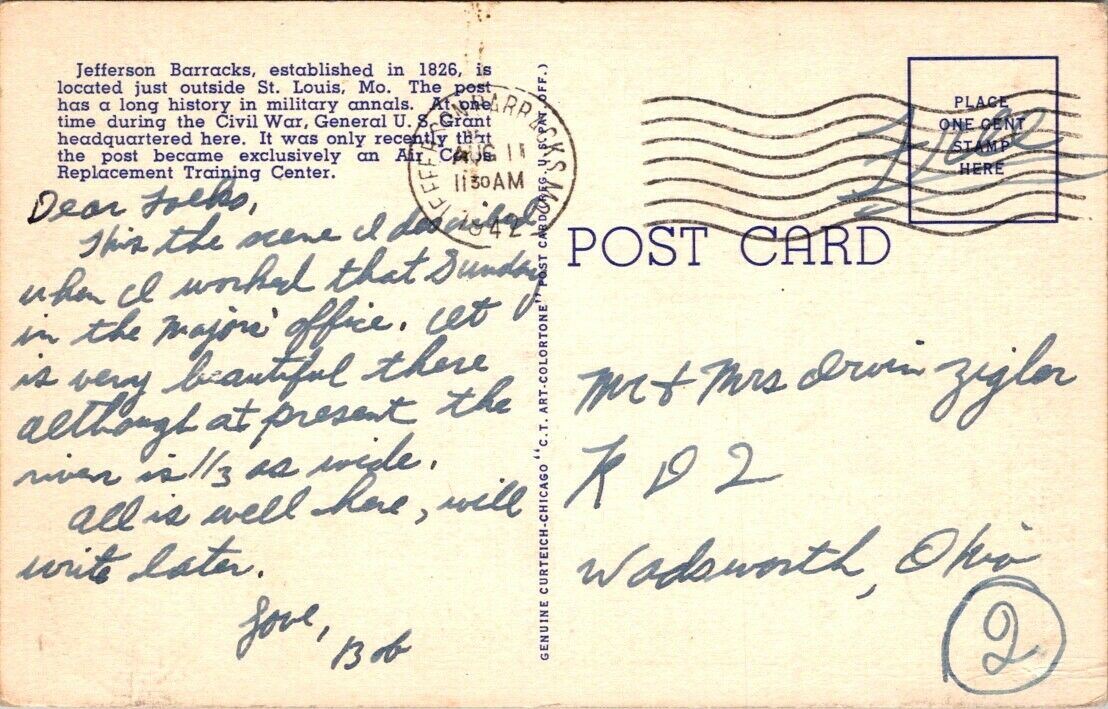 Jefferson Barracks, established in 1826, is
located just outside St. Louis, Mo. The post
has a long history in military annals. At one
time during the Civil War, General U. S. Grant
headquartered here. It was only recently that
the post became exclusively an Air Corps
Replacement Training Center.
JEFFERSON BARRACKS, MO.
AUG 11
11 30 AM
1942
Dear Folks,
This the scene I described
when I worked that Sunday
in the Majors' office. It
is very beautiful there
although at present the
river is 1/3 as wide.
All is well here, will
write later.
Love,
Bob
GENUINE CURTEICH-CHICAGO "C.T. ART-COLORTONE" POST CARD (REG. U. S. PAT. OFF.)
PLACE
ONE CENT
STAMP
HERE
Free
POST CARD
Mr + Mrs Irvin Zigler
R D 2
Wadsworth, Ohio
2